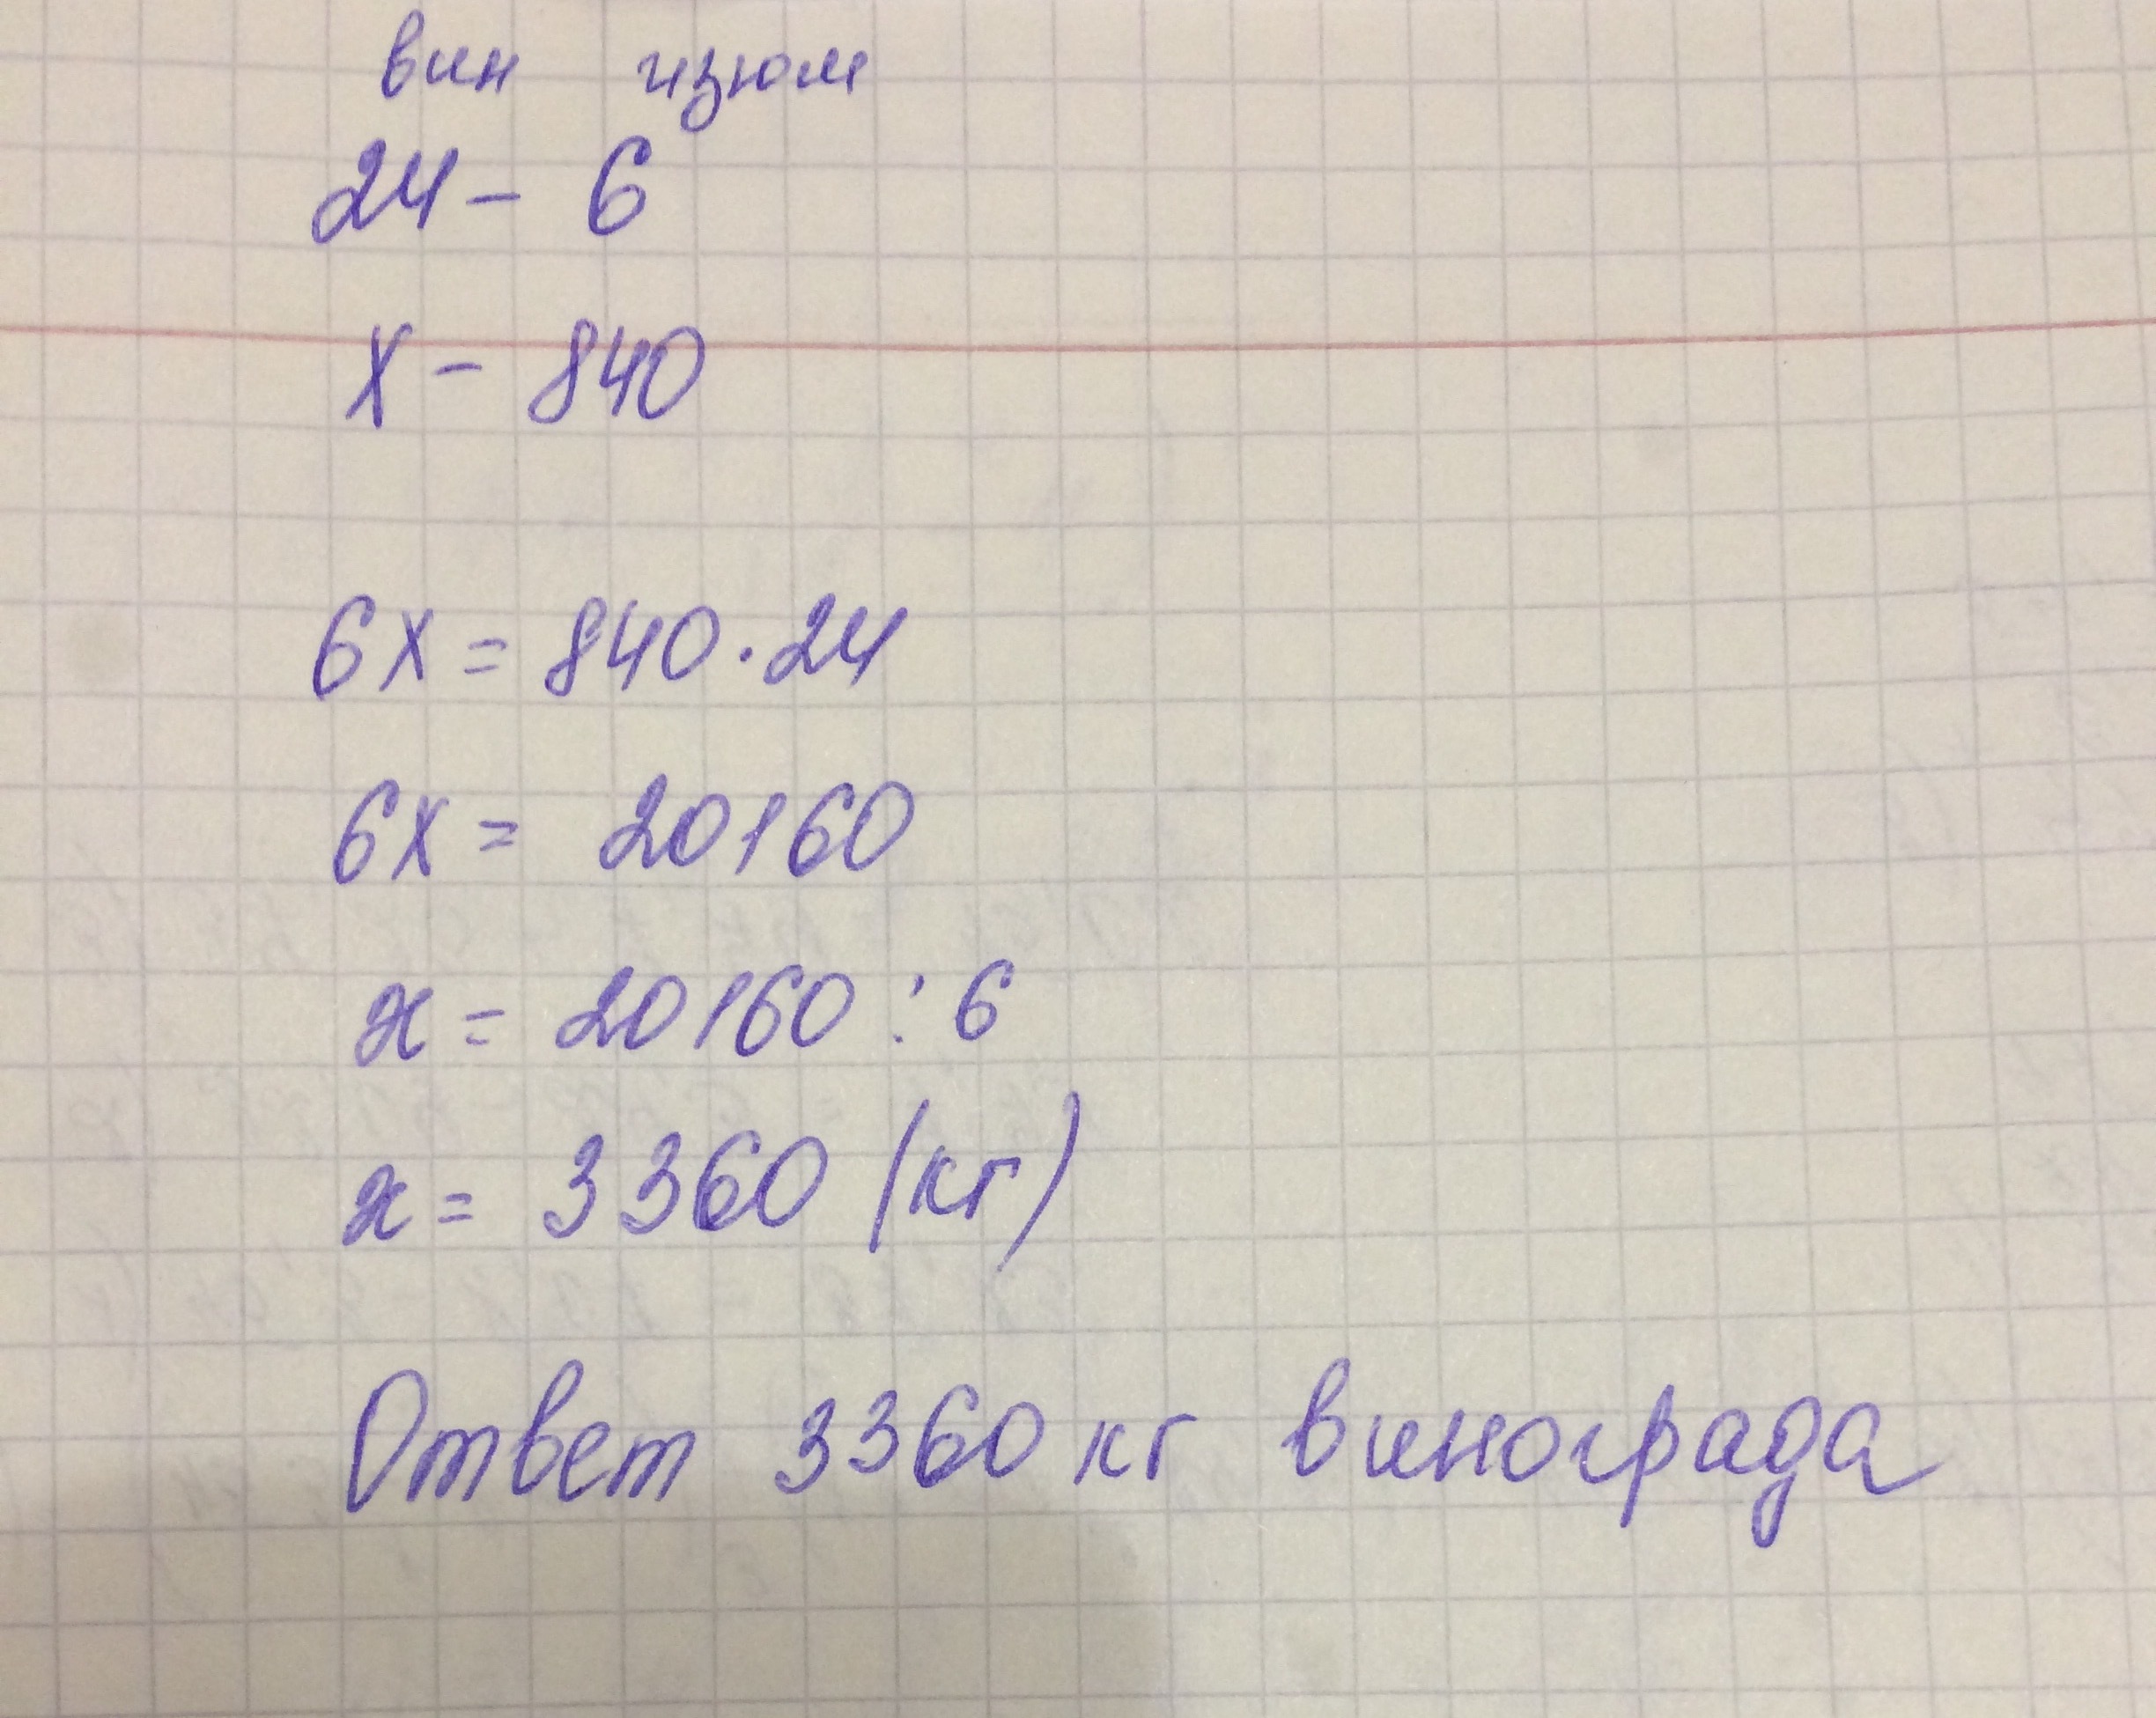 вин изюм
24 – 6
х – 840
6х = 840 · 24
6х = 20160
х = 20160 : 6
х = 3360 (кг)
Ответ 3360 кг винограда